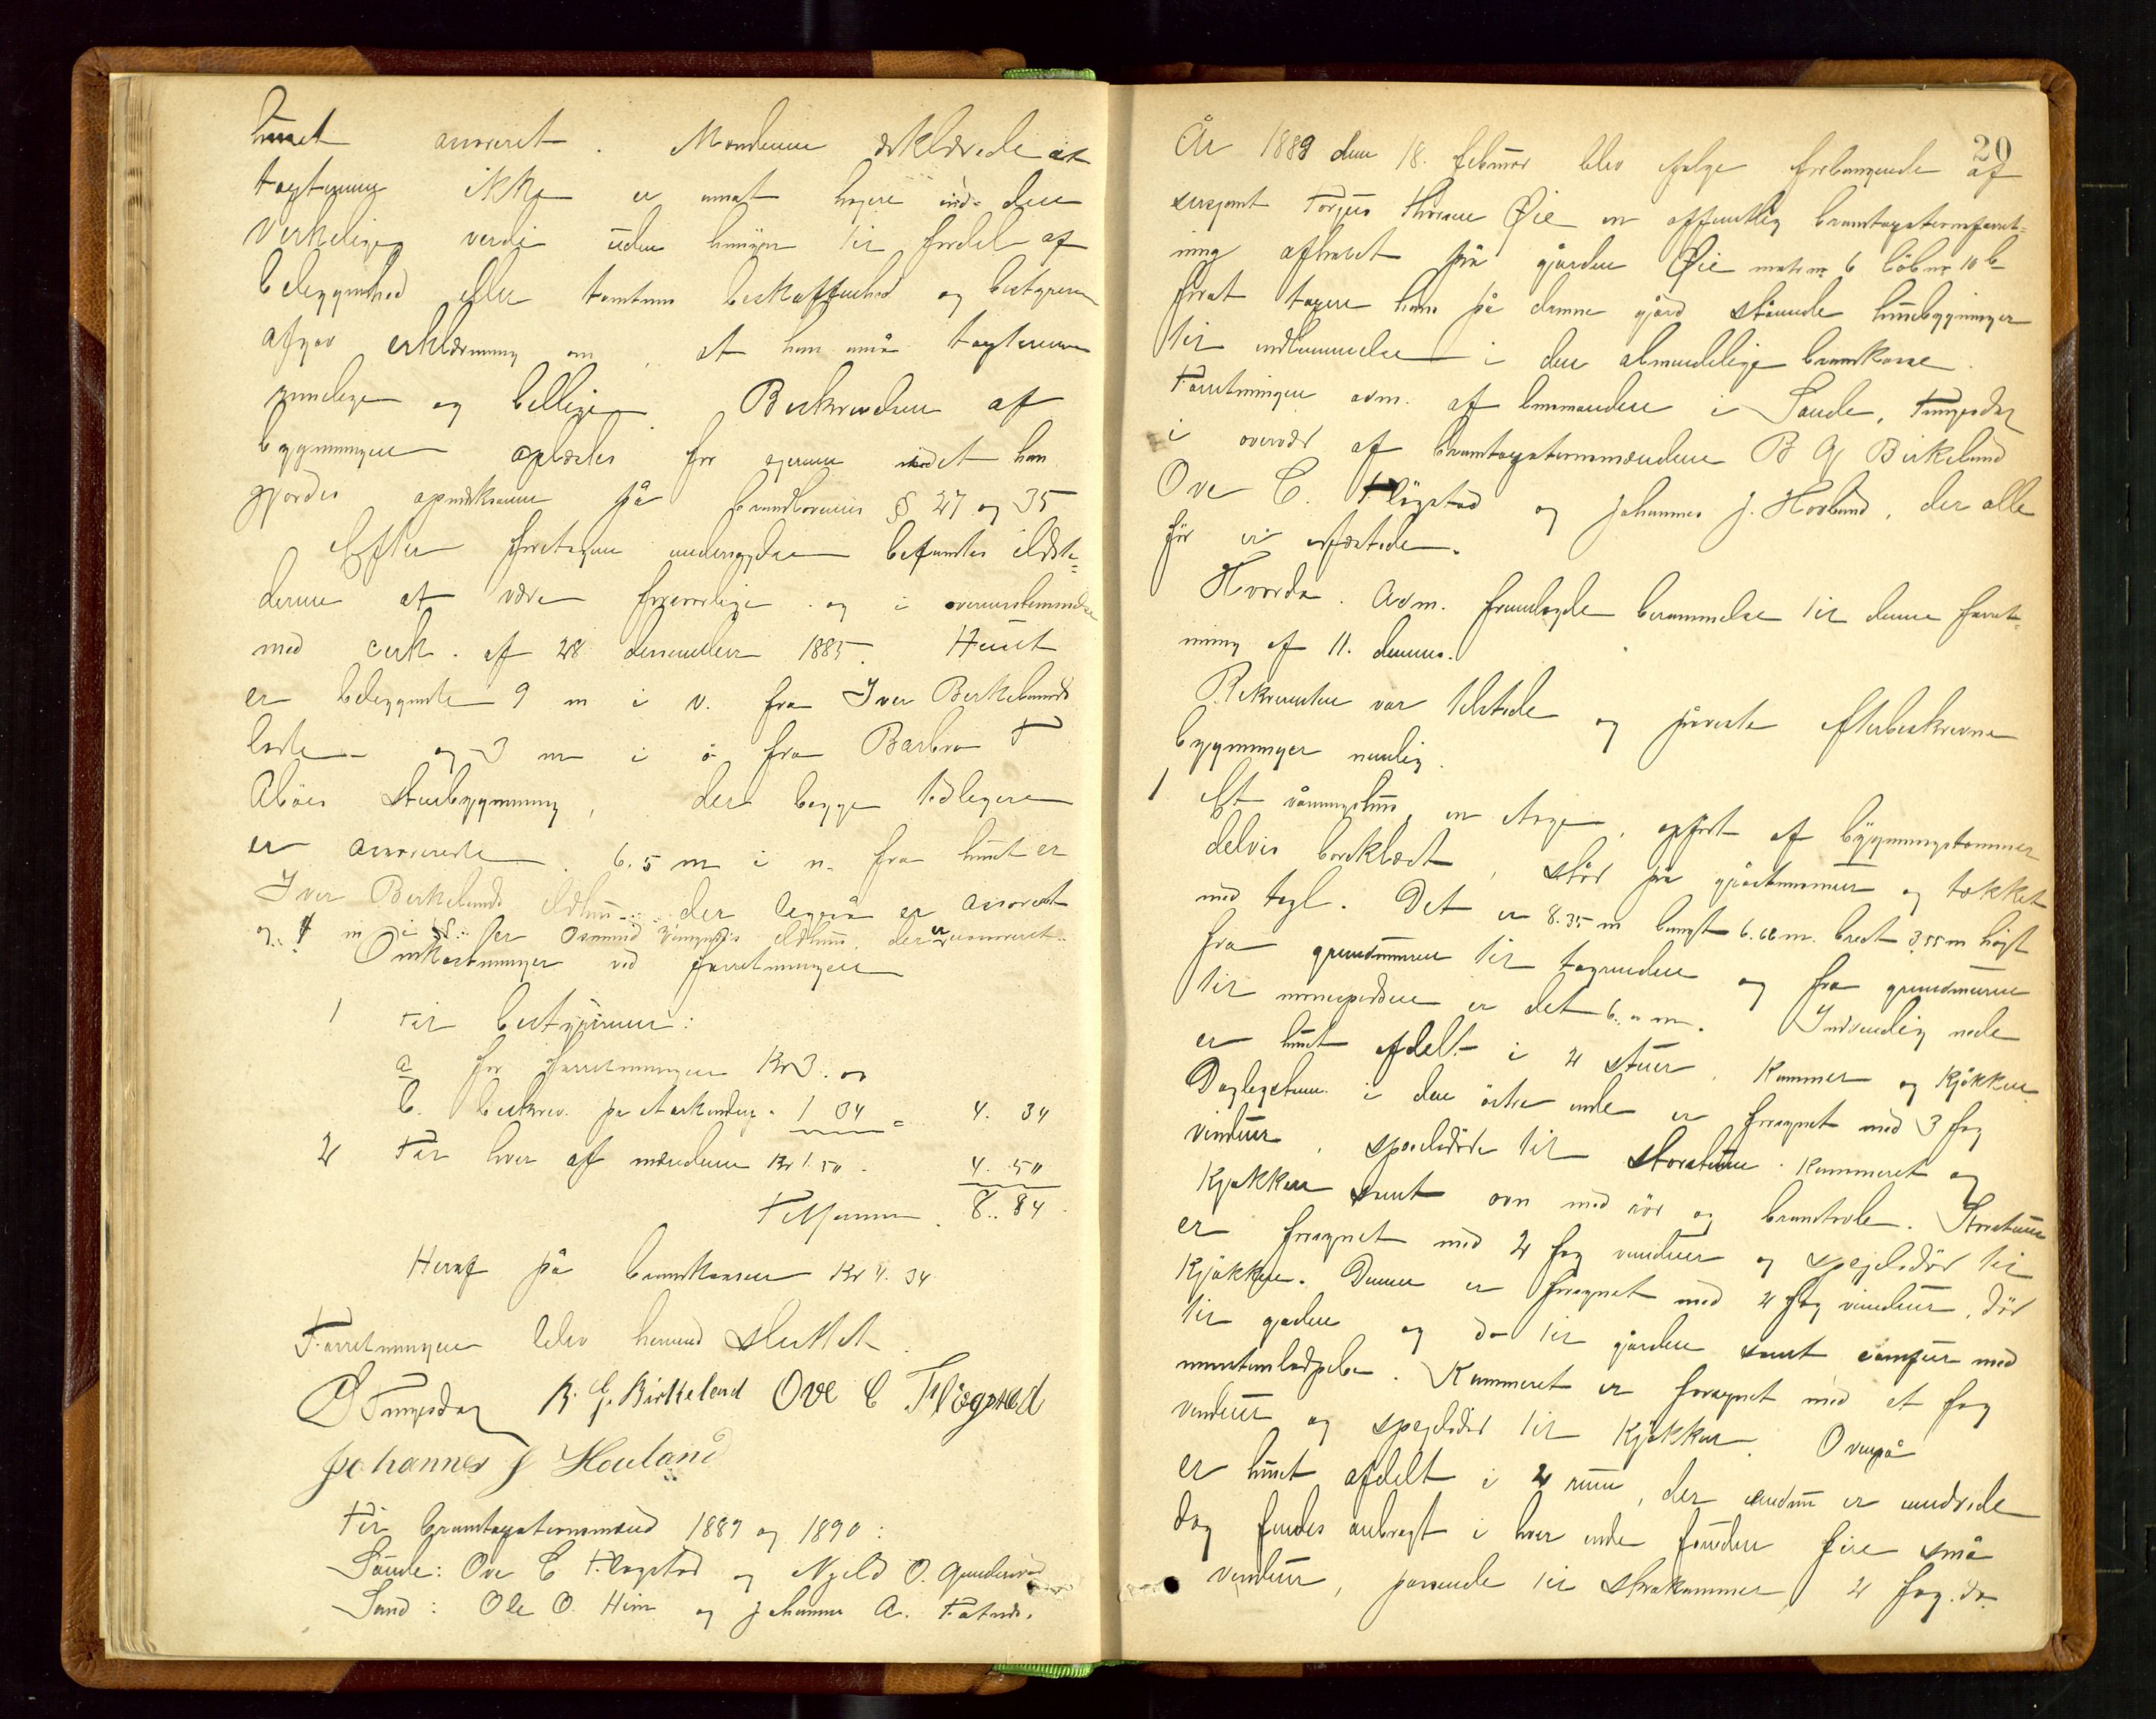 huset assureret. Mændene erklærede at
taxterne ikke er ansat høyere end den
verkelige verdi uden hensyn til fordel af
beleggenhed eller tomtens beskaffenhed og bestyreren
afgav erklærning om, at han anså taxterne
rimelige og bellige. Beskrivelsen af
bygningen oplæstes for ejeren idet han
gjordes opmærksom på brandlovens § 27 og 35
Efter foretagen undersøgelse befandtes ildste=
derne at være forsvarlige og i overensstemmelse
med cerk. af 28 desember 1885. Huset
er beleggende 9 m i v. fra Iver Berkelands
løde og 3 m i ø fra Barbro T
Aböes stuebygning, der begge tidligere
er assurerede. 6.5 m i n. fra huset er
Iver Berkelands ildhus der også er assureret
og m i fra Osmund ildhus, der er uassureret
Omkostninger ved forretningen
1 Til bestyreren:
a for forretningen Kr 3. 00
b. beskrev. pr 1 34 = 4. 34
2 Til hver af mændene Kr 1.50. 4. 50
Tilsammen 8. 84
Heraf på brandkassen Kr 4. 34
Forretningen blev hermed sluttet.
Tungesdag B. G. Birkeland Ove C Fløgstad
Johannes J Houland
Til brantaxtionsmænd 1889 og 1890:
Saude: Ove C Fløgstad og Njeld O.
Sand: Ole O. Hiim og Johannes A.
20
År 1889 den 18. februar blev efter forlangende af
sersjant Torjus Thorsen Øie en offentlig branntaxtionsforret=
ning afholdt på gården Øie matr nr 6 løb nr 10 b
forat taxere hans på denne gård stående husebygninger
til indlemmelse i den almindelige brandkasse.
Forretningen adm. af lensmanden i Saude, Tungesdag
i overvær af branntaxtionsmændene B G Birkeland
Ove C. Fløgstad og Johannes J. Hovland, der alle
før er edfæstede.
Hvorda. Adm. fremlagde berammelse til denne forret=
ning af 11. dennes.
Rekvirenten var tilstede og påviste efterbeskrevne
bygninger nemlig.
1 Et våningshus, en etage, opført af bygningstømmer
delvis bordklædt, står på gråstensmur og tækket
med tegl. Det er 8.35 m langt 6.60 m. bredt 3.55 m høgt
fra grundmuren til tagrenden og fra grundmuren
til mønespidsen er det 6. m. Indvendig nede
er huset afdelt i 2 stuer, kammer og kjøkken.
Daglegstuen i den østre ende er forsynet med 3 fag
vinduer, spejeldøre til storstuen, kammeret og
kjøkken samt ovn med rör og brandtvole. Storstuen
er forsynet med 2 fag vinduer og spejeldør til
kjøkken. Denne er forsynet med 2 fag vinduer, dør
til gaden og do til gården samt comfur med
murstensladpibe. Kammeret er forsynet med et fag
vinduer og spejeldør til kjøkken. Ovenpå
er huset afdelt i 2 rum, der endnu er uindrede
dog findes anbragt i hver ende foruden fire små
vinduer, passende til skrakammer, 2 fag. do.